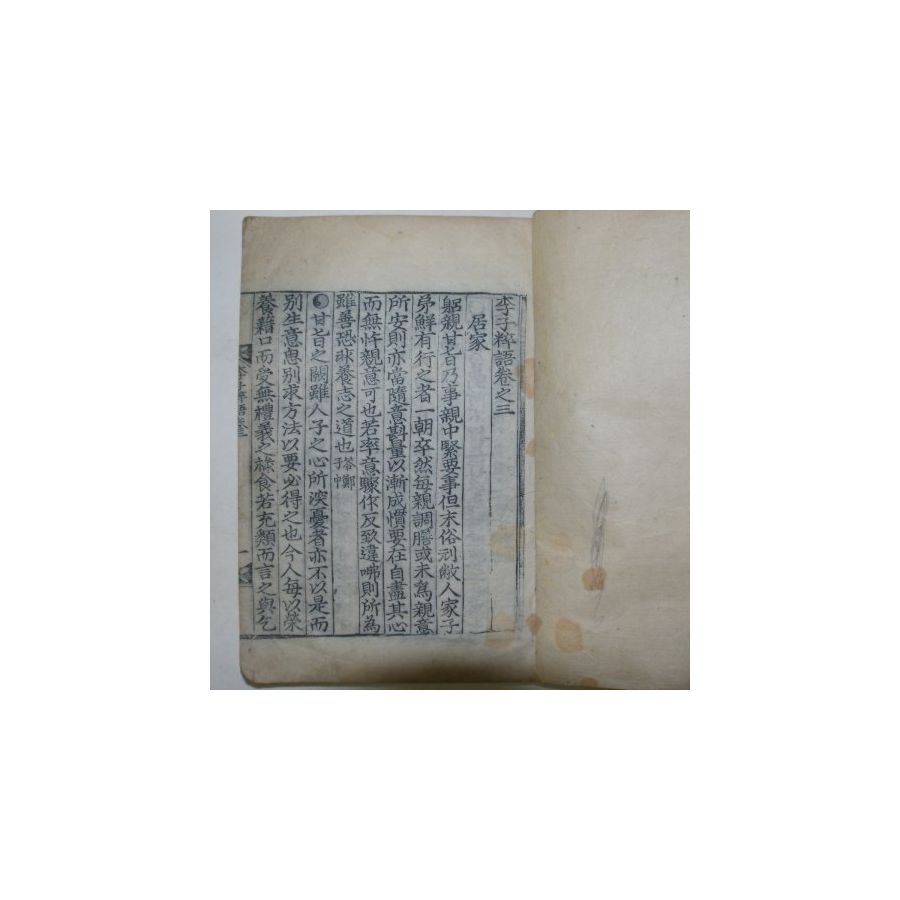 李子粹語卷之三
居家
躬親甘旨乃事親中緊要事但末俗刓敝人家子
弟鮮有行之者一朝卒然每親調膳或未爲親意
所安則亦當隨意斟量以漸成慣要在自盡其心
而無忤親意可也若率意驟作反致違咈則所爲
雖善恐非養志之道也答鄭子中
甘旨之闕雖人子之心所深憂者亦不以是而
別生意思別求方法以要必得之也今人每以榮
養藉口而受無禮義之祿食若充類而言之與乞
李子粹語卷三
一